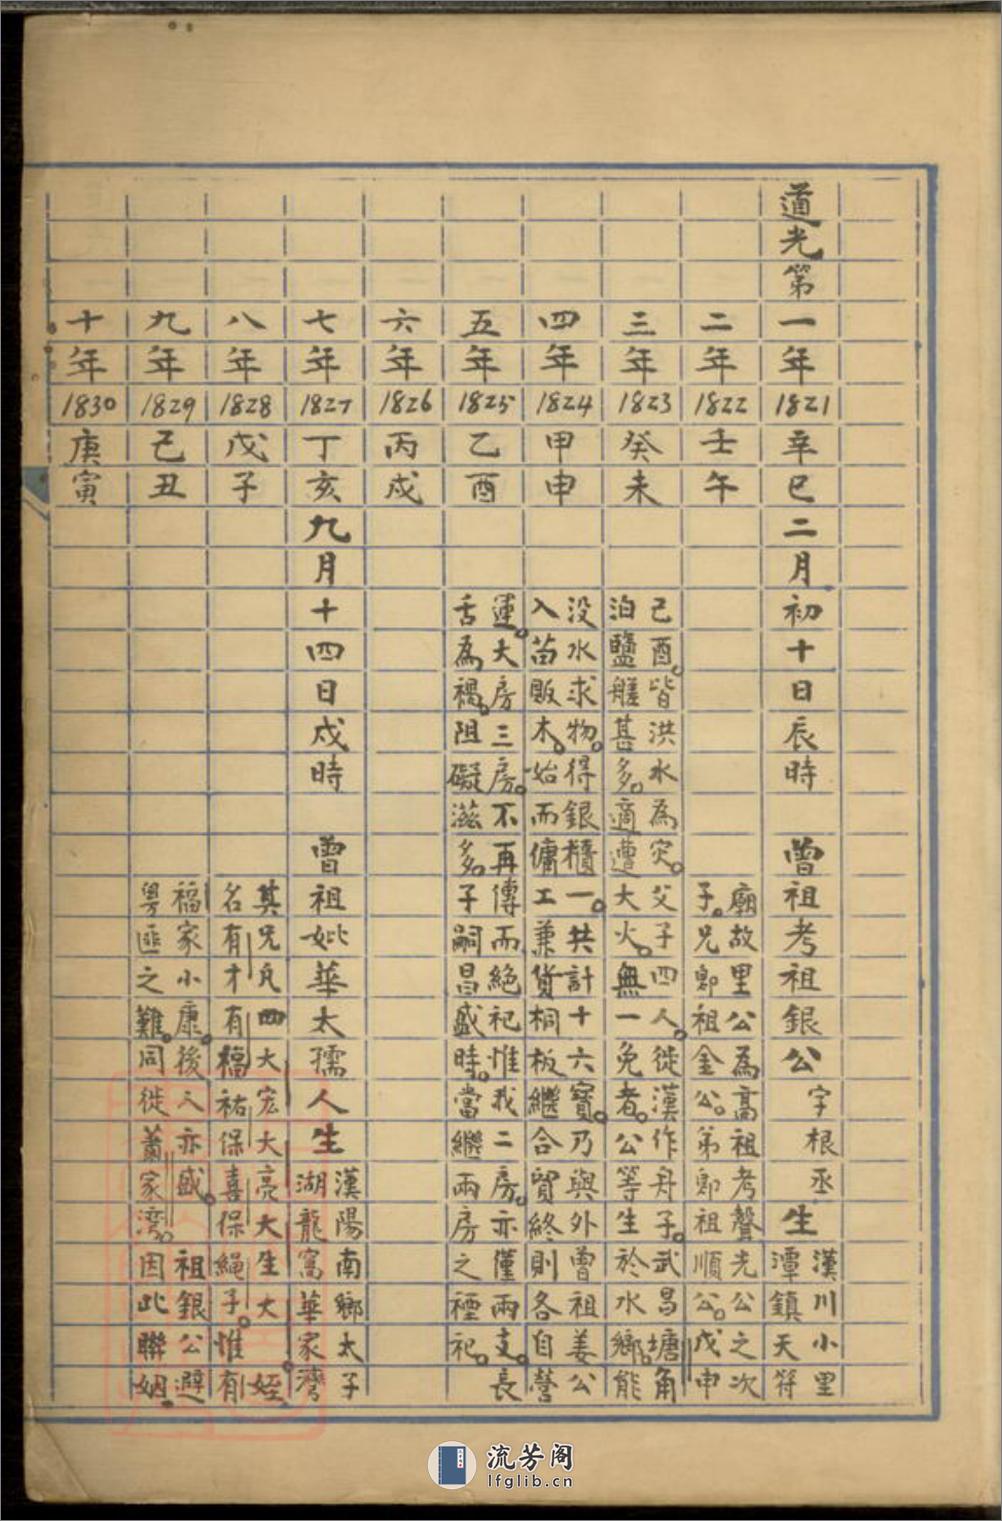 道光第一年1821辛巳二月初十日辰時 曾祖考祖銀公 字根丞 生
漢川小里
潭鎮天符
二年1822壬午
廟故里公為高祖考聲光公之次
子。兄郎祖金公。弟郎祖順公。戊申
三年1823癸未
己酉。皆洪水為災。父子四人。徙漢作舟子。武昌塘角
泊鹽艖甚多。適遭大火。無一免者。公等生於水鄉。能
四年1824甲申
没水求物。得銀櫃一。共計十六寶。乃與外曾祖姜公
入苗販木。始而傭工兼貨桐板繼合貿終則各自營
五年1825乙酉
運。大房三房。不再傳而絕祀惟我二房。亦僅兩支。長
舌為禍。阻礙滋多。子嗣昌盛時。當繼兩房之禋祀。
六年1826丙戌
七年1827丁亥九月十四日戌時 曾祖妣華太孺人生
漢陽南鄉太子
湖龍窩華家灣
八年1828戊子
其兄氏四大宏大亮大生大。姪
名有才有福祐保喜保繩子。惟有
九年1829己丑
福家小康。後人亦盛。祖銀公避
粵匪之難。同徙蕭家灣。因此聯姻。
十年1830庚寅
流芳阁
lfglib.cn